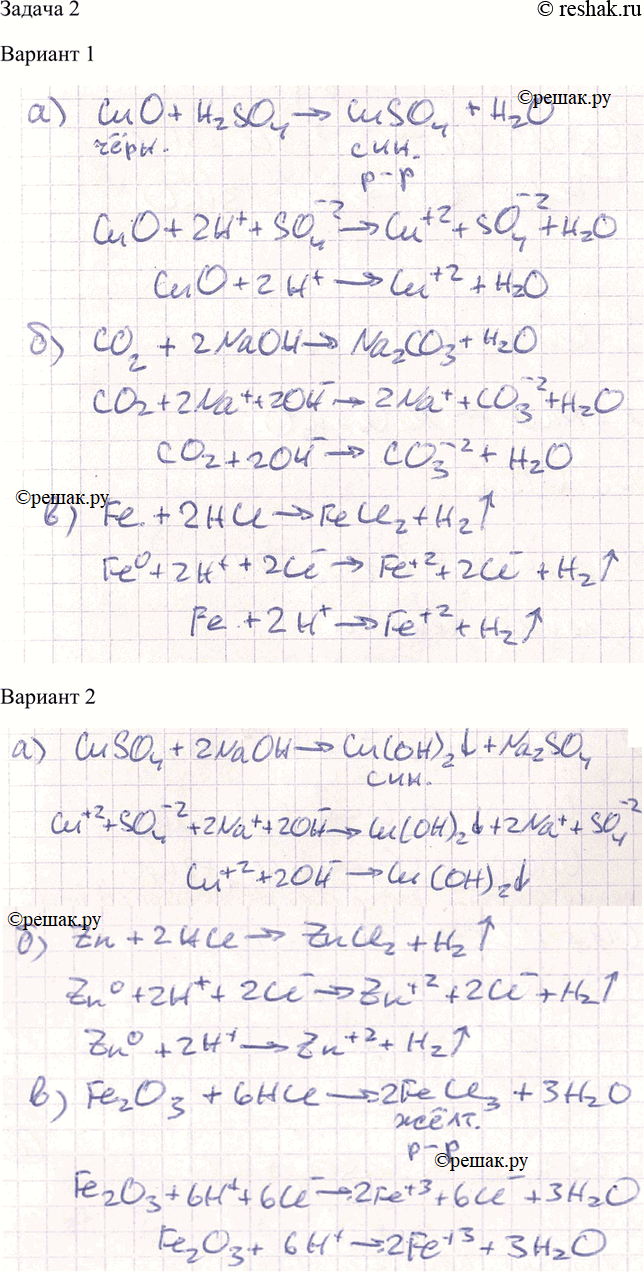 Задача 2
© reshak.ru
Вариант 1
©решак.ру
а) CuO + H₂SO₄ → CuSO₄ + H₂O
чёрн. син.
р-р
CuO + 2H⁺ + SO₄⁻² → Cu⁺² + SO₄⁻² + H₂O
CuO + 2H⁺ → Cu⁺² + H₂O
б) CO₂ + 2NaOH → Na₂CO₃ + H₂O
CO₂ + 2Na⁺ + 2OH⁻ → 2Na⁺ + CO₃⁻² + H₂O
CO₂ + 2OH⁻ → CO₃⁻² + H₂O
©решак.ру
в) Fe + 2HCl → FeCl₂ + H₂↑
Fe⁰ + 2H⁺ + 2Cl⁻ → Fe⁺² + 2Cl⁻ + H₂↑
Fe + 2H⁺ → Fe⁺² + H₂↑
Вариант 2
а) CuSO₄ + 2NaOH → Cu(OH)₂↓ + Na₂SO₄
син.
Cu⁺² + SO₄⁻² + 2Na⁺ + 2OH⁻ → Cu(OH)₂↓ + 2Na⁺ + SO₄⁻²
Cu⁺² + 2OH⁻ → Cu(OH)₂↓
©решак.ру
б) Zn + 2HCl → ZnCl₂ + H₂↑
Zn⁰ + 2H⁺ + 2Cl⁻ → Zn⁺² + 2Cl⁻ + H₂↑
Zn⁰ + 2H⁺ → Zn⁺² + H₂↑
в) Fe₂O₃ + 6HCl → 2FeCl₃ + 3H₂O
жёлт.
р-р
©решак.ру
Fe₂O₃ + 6H⁺ + 6Cl⁻ → 2Fe⁺³ + 6Cl⁻ + 3H₂O
Fe₂O₃ + 6H⁺ → 2Fe⁺³ + 3H₂O